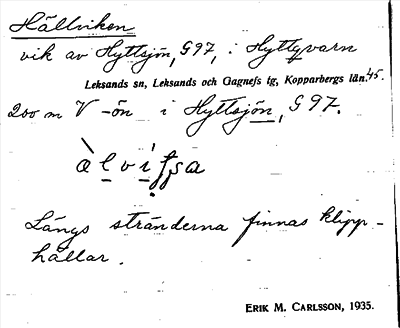 Hällviken
vik av Hyttsjön, G97, i Hyttqvarn
Leksands sn, Leksands och Gagnefs tg, Kopparbergs län. 45.
200 m V -ön i Hyttsjön, G 97.
Längs stränderna finnas klipp-
hällar.
ERIK M. CARLSSON, 1935.